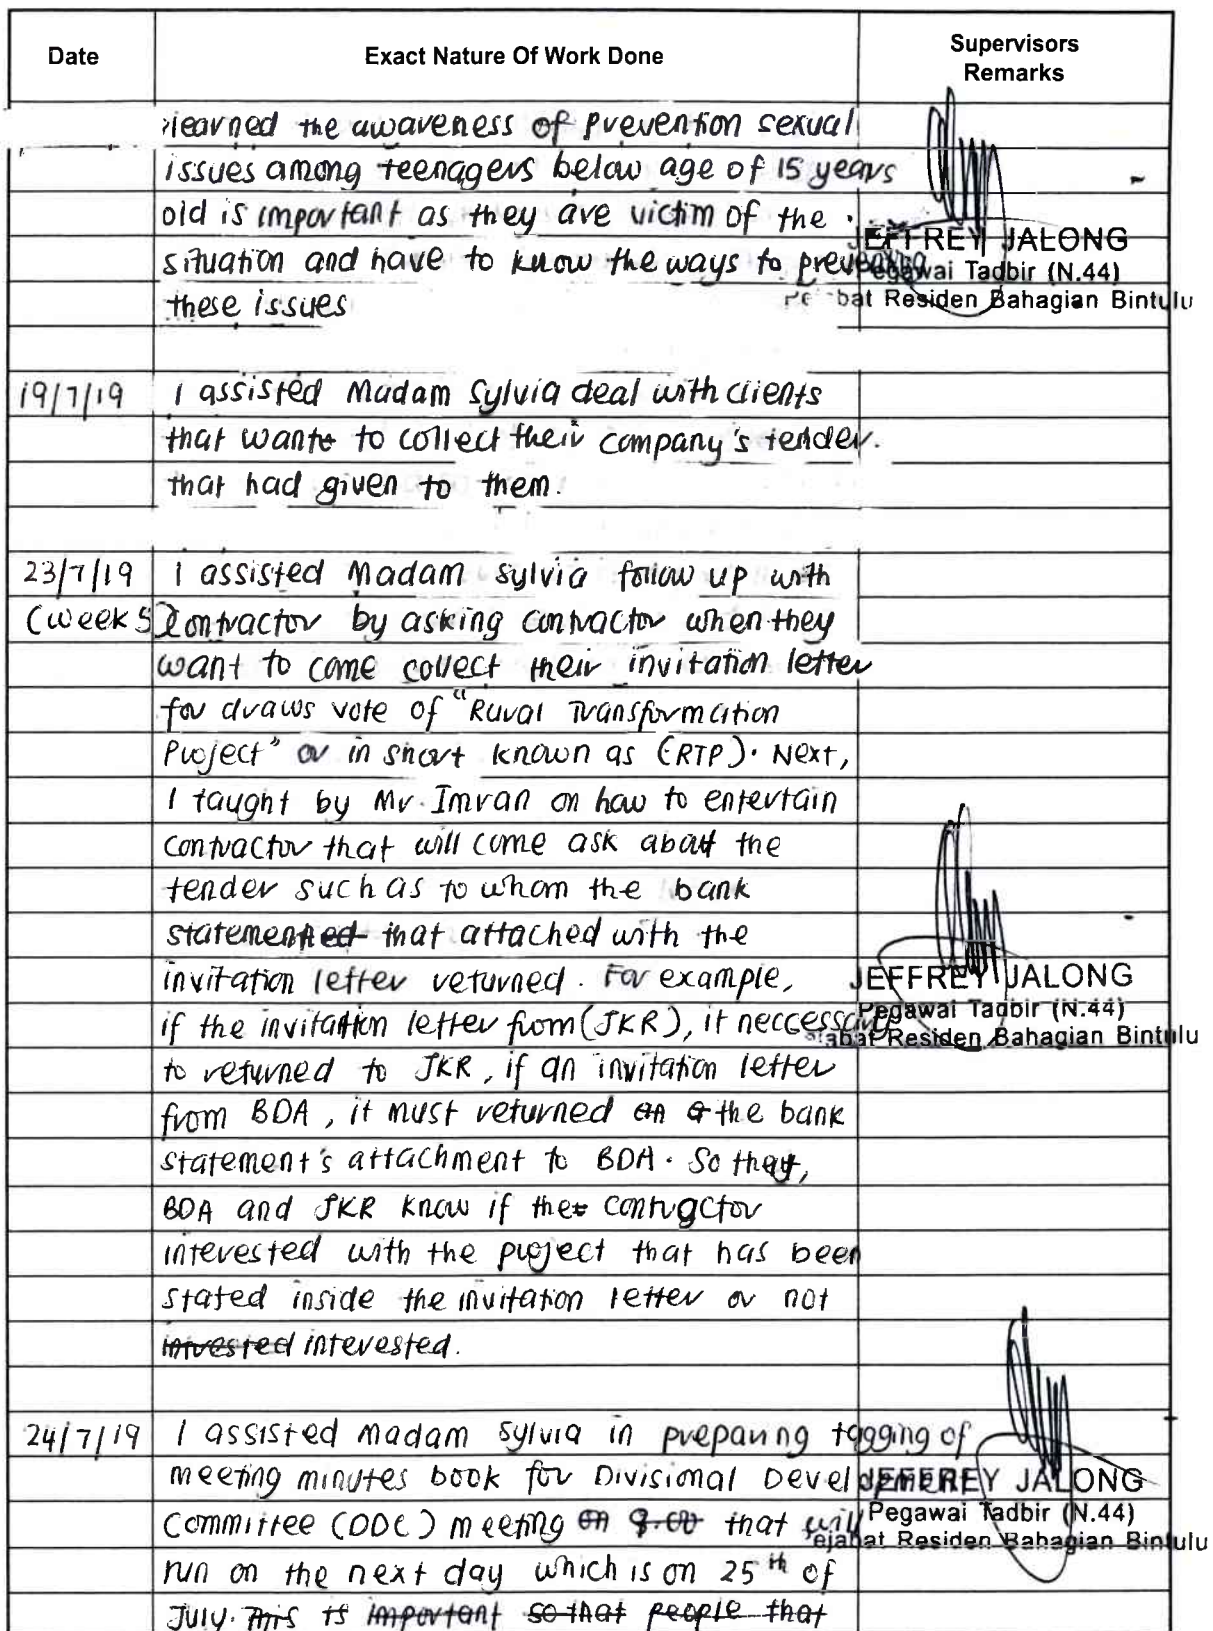 Date Exact Nature Of Work Done Supervisors Remarks
learned the awareness of prevention sexual
issues among teenagers below age of 15 years
old is important as they are victim of the
situation and have to know the ways to prevent
these issues
JEFFREY JALONG
Pegawai Tadbir (N.44)
bat Residen Bahagian Bintulu
19/7/19 I assisted Madam Sylvia deal with clients
that want to collect their company's tender.
that had given to them.
23/7/19 I assisted Madam Sylvia follow up with
(week 5) contractor by asking contractor when they
want to come collect their invitation letter
for draws vote of "Rural Transformation
Project" or in short known as (RTP). Next,
I taught by Mr. Imran on how to entertain
contractor that will come ask about the
tender such as to whom the bank
statement ed that attached with the
invitation letter returned. For example,
if the invitation letter from (JKR), it neccessary
to returned to JKR, if an invitation letter
from BDA, it must returned the bank
statement's attachment to BDA. So that,
BDA and JKR know if the contractor
interested with the project that has been
stated inside the invitation letter or not
intrested interested.
JEFFREY JALONG
Pegawai Tadbir (N.44)
jabat Residen Bahagian Bintulu
24/7/19 I assisted Madam Sylvia in preparing tagging of
meeting minutes book for Divisional Development
Committee (DDC) meeting on 9.00 that will
run on the next day which is on 25th of
July. This is important so that people that
JEFFREY JALONG
Pegawai Tadbir (N.44)
ejabat Residen Bahagian Bintulu